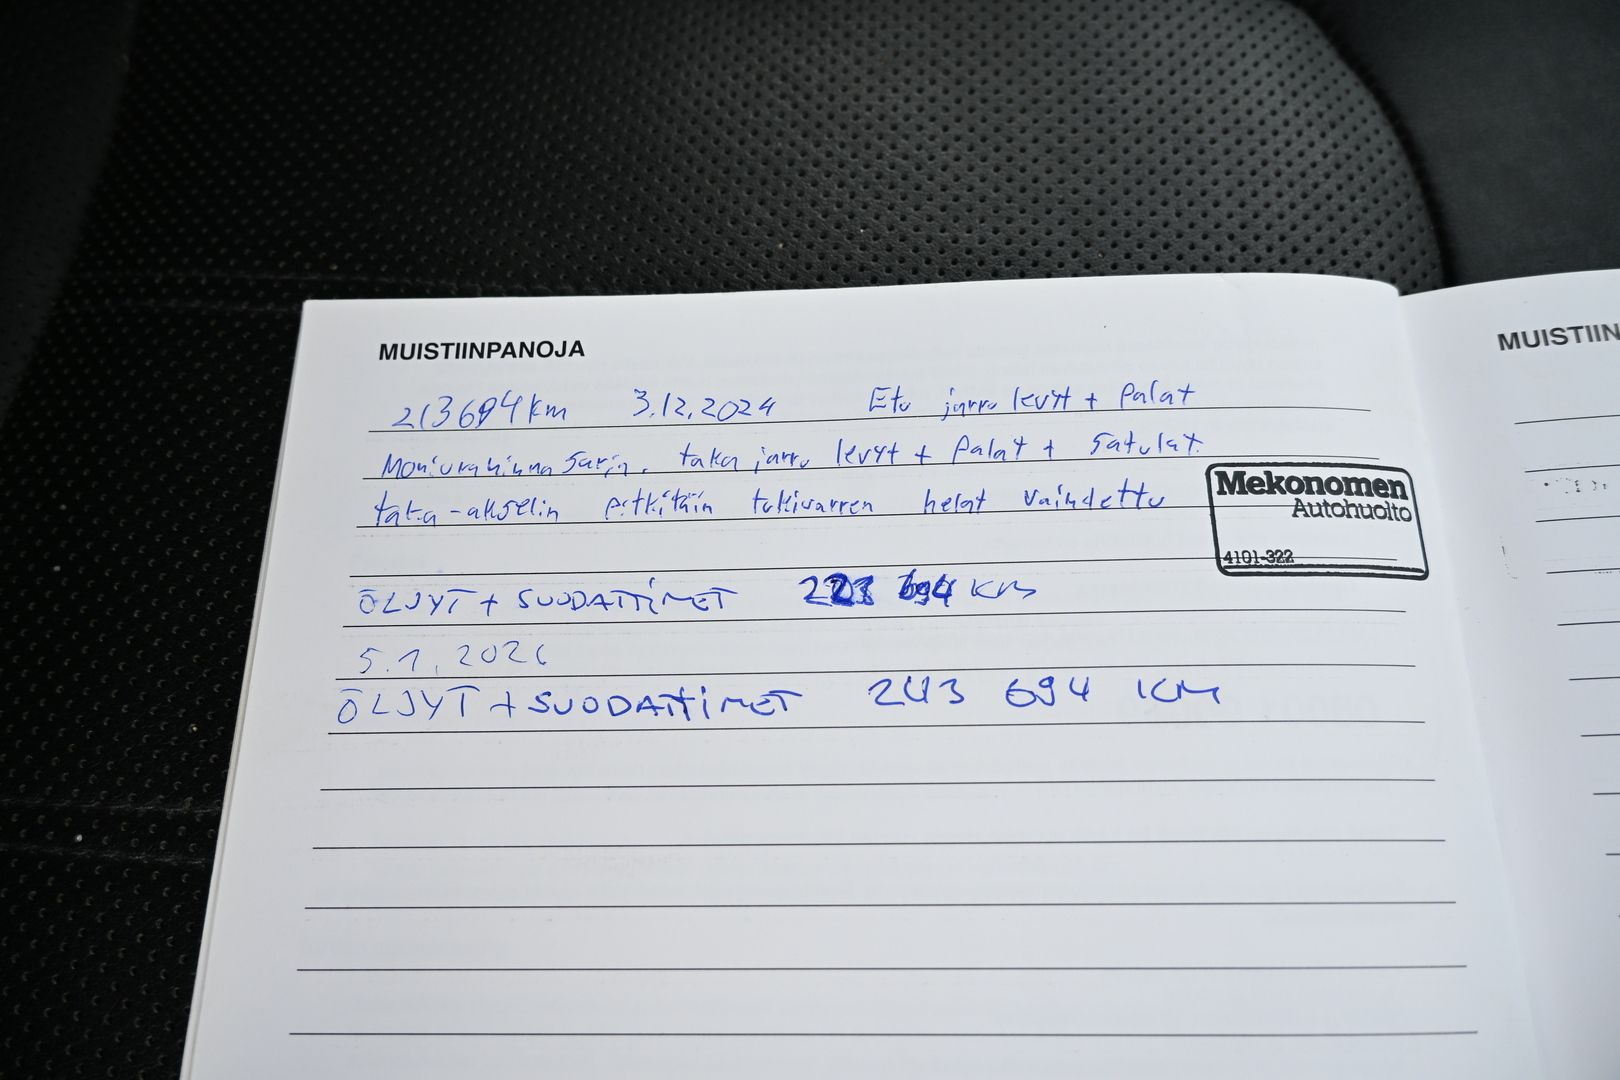 MUISTIINPANOJA
213694 km 3.12.2024 Etu jarru levyt + palat
Moniurahihna sarja. taka jarru levyt + palat + satulat.
taka-akselin pitkitäin tukivarren helat vaihdettu
Mekonomen
Autohuolto
4101-322
ÖLJYT + SUODATTIMET 223 694 KM
5.1.2026
ÖLJYT + SUODATTIMET 243 694 KM
MUISTIIN